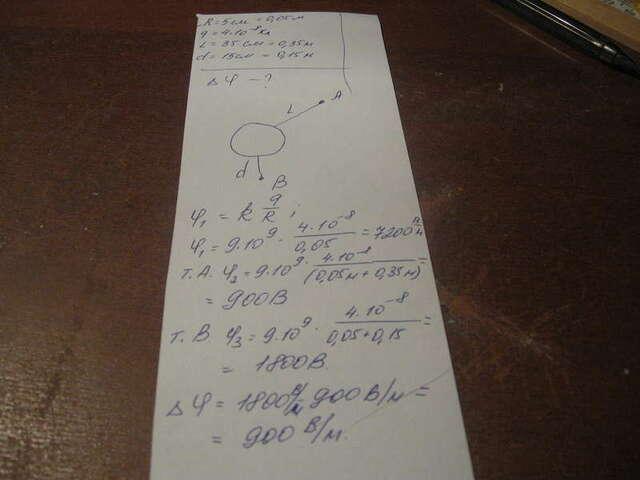 R = 5 см = 0,05 м
q = 4·10⁻⁸ Кл
L = 35 см = 0,35 м
d = 15 см = 0,15 м
Δφ - ?
A
L
d
B
φ₁ = k q/R ;
φ₁ = 9·10⁹ · 4·10⁻⁸/0,05 = 7200 В/м
т. А. φ₂ = 9·10⁹ · 4·10⁻⁸/(0,05м + 0,35м) =
= 900 В
т. В. φ₃ = 9·10⁹ · 4·10⁻⁸/0,05+0,15 =
= 1800 В.
Δφ = 1800 В/м 900 В/м =
= 900 В/м.